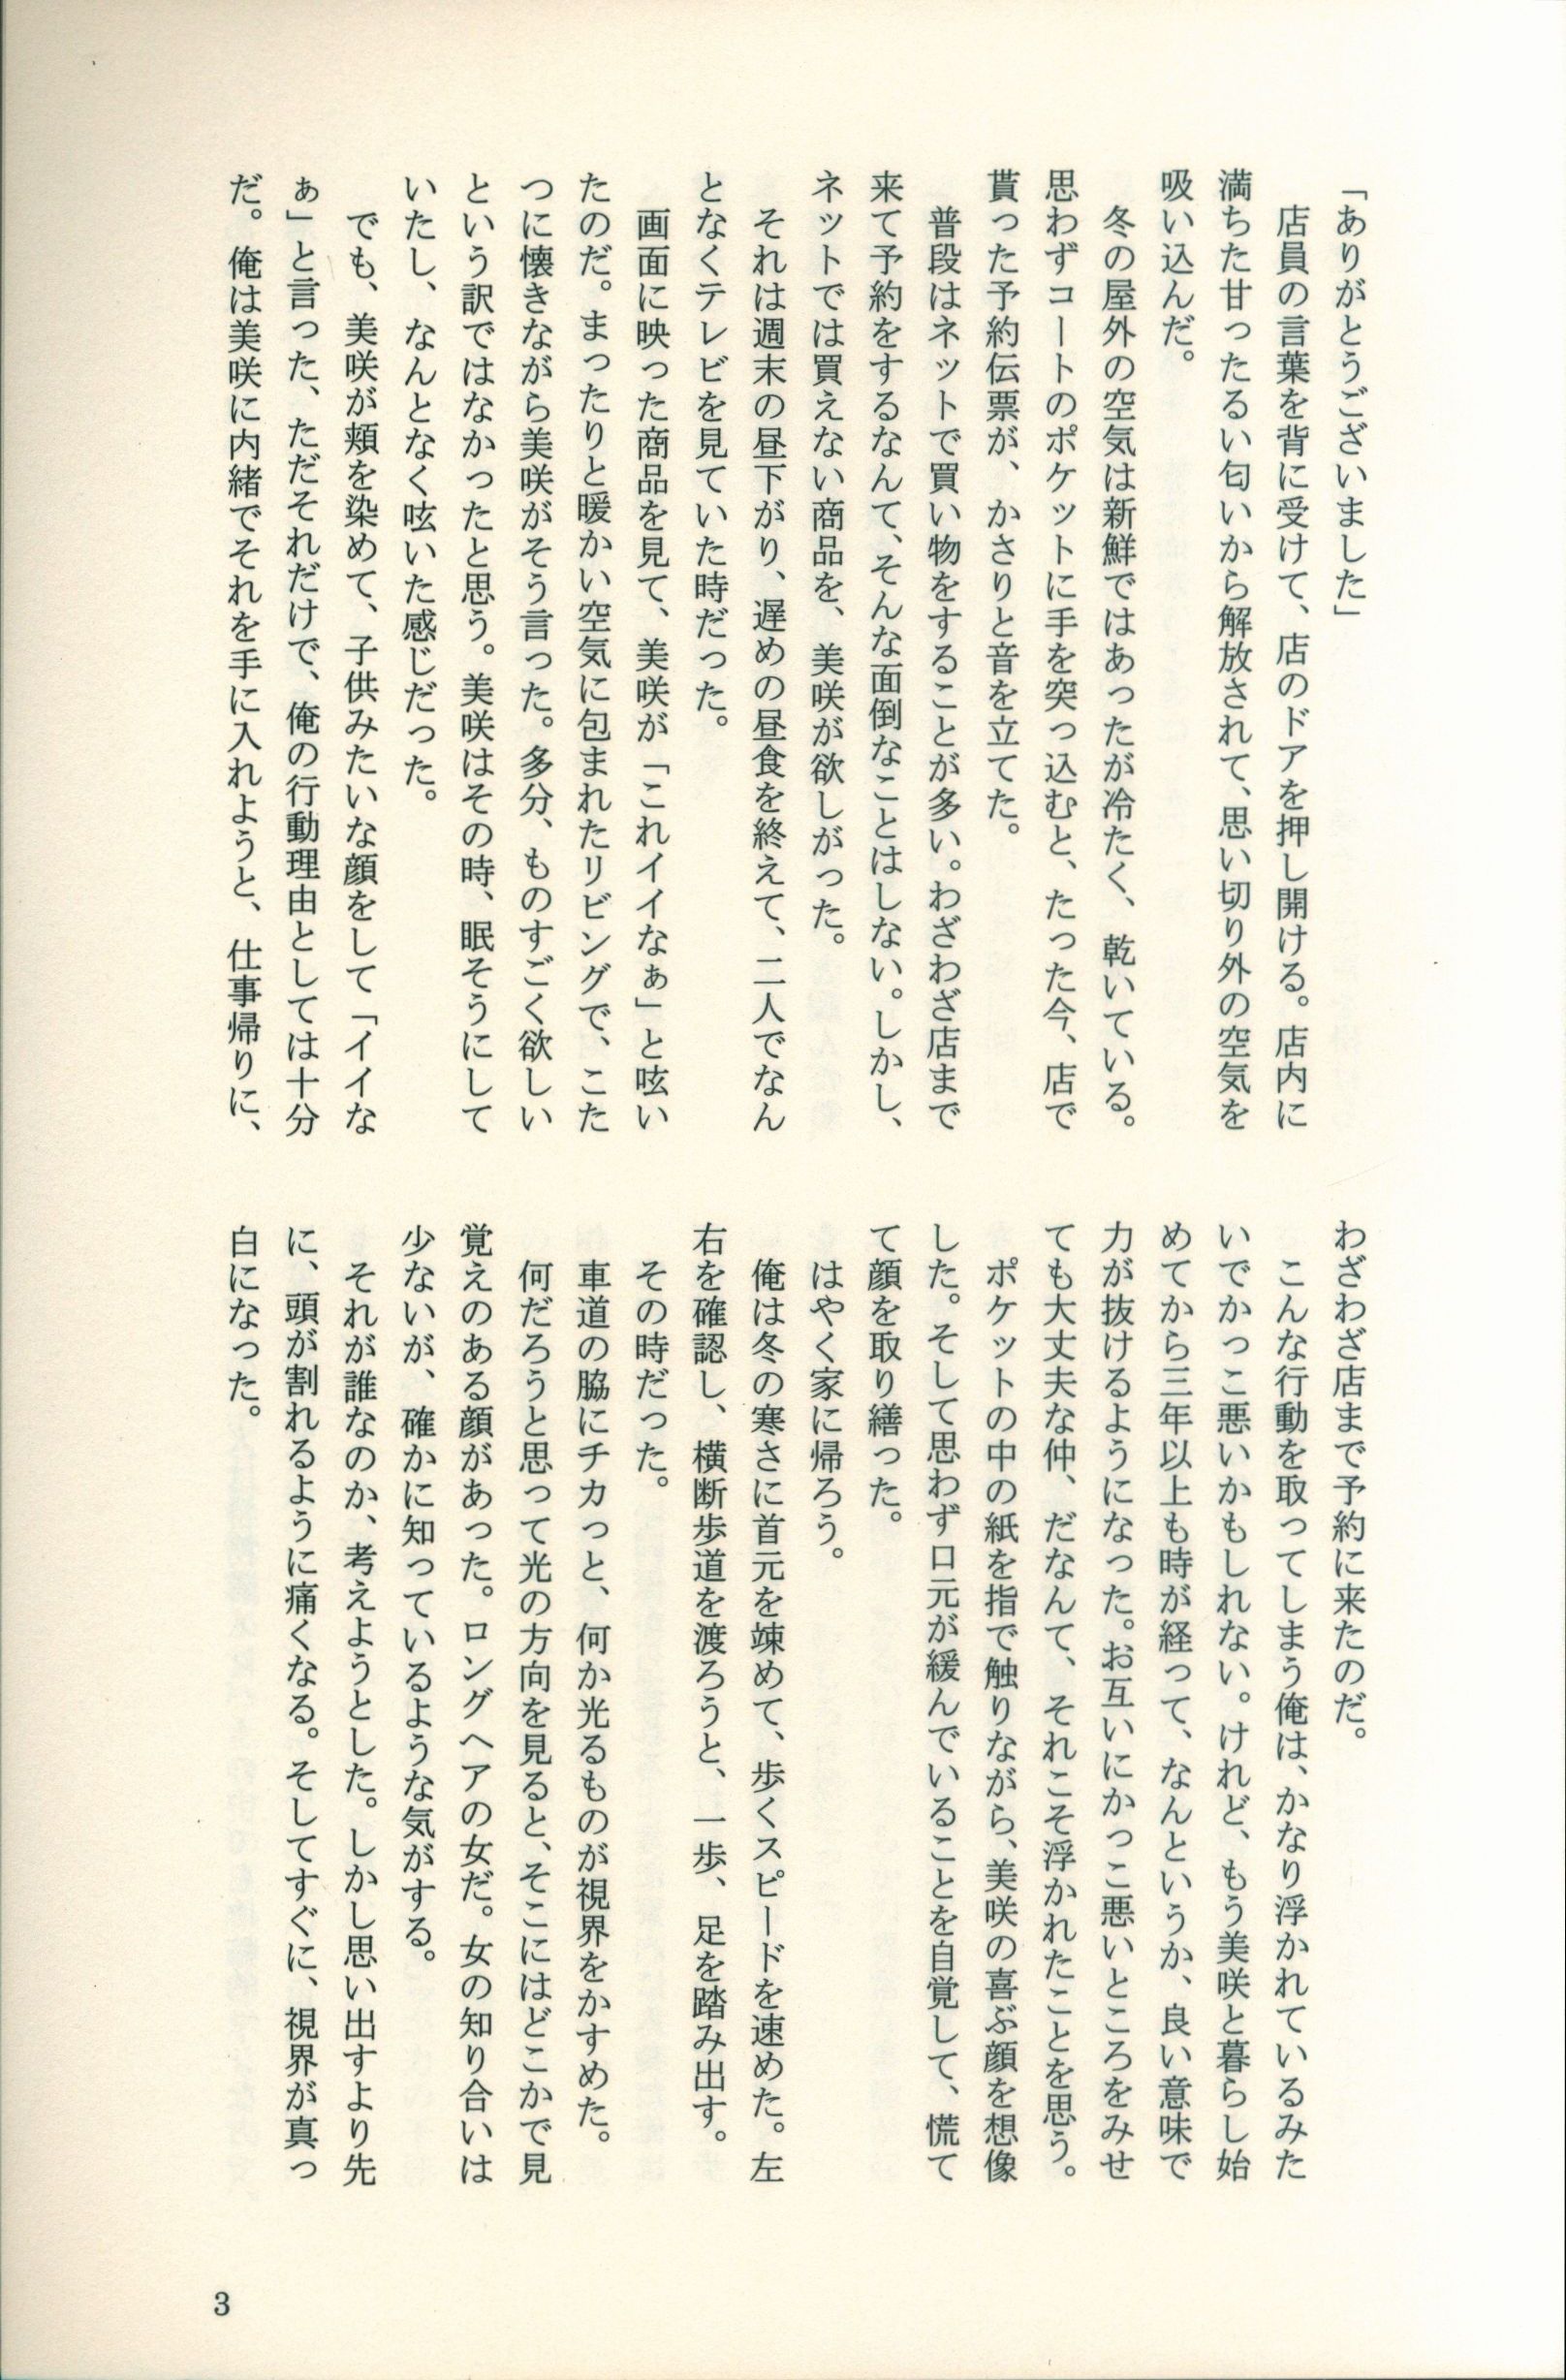 「ありがとうございました」
　店員の言葉を背に受けて、店のドアを押し開ける。店内に
満ちた甘ったるい匂いから解放されて、思い切り外の空気を
吸い込んだ。
　冬の屋外の空気は新鮮ではあったが冷たく、乾いている。
思わずコートのポケットに手を突っ込むと、たった今、店で
貰った予約伝票が、かさりと音を立てた。
　普段はネットで買い物をすることが多い。わざわざ店まで
来て予約をするなんて、そんな面倒なことはしない。しかし、
ネットでは買えない商品を、美咲が欲しがった。
　それは週末の昼下がり、遅めの昼食を終えて、二人でなん
となくテレビを見ていた時だった。
　画面に映った商品を見て、美咲が「これイイなぁ」と呟い
たのだ。まったりと暖かい空気に包まれたリビングで、こた
つに懐きながら美咲がそう言った。多分、ものすごく欲しい
という訳ではなかったと思う。美咲はその時、眠そうにして
いたし、なんとなく呟いた感じだった。
　でも、美咲が頬を染めて、子供みたいな顔をして「イイな
ぁ」と言った、ただそれだけで、俺の行動理由としては十分
だ。俺は美咲に内緒でそれを手に入れようと、仕事帰りに、
わざわざ店まで予約に来たのだ。
　こんな行動を取ってしまう俺は、かなり浮かれているみた
いでかっこ悪いかもしれない。けれど、もう美咲と暮らし始
めてから三年以上も時が経って、なんというか、良い意味で
力が抜けるようになった。お互いにかっこ悪いところをみせ
ても大丈夫な仲、だなんて、それこそ浮かれたことを思う。
　ポケットの中の紙を指で触りながら、美咲の喜ぶ顔を想像
した。そして思わず口元が緩んでいることを自覚して、慌て
て顔を取り繕った。
　はやく家に帰ろう。
　俺は冬の寒さに首元を竦めて、歩くスピードを速めた。左
右を確認し、横断歩道を渡ろうと、一歩、足を踏み出す。
　その時だった。
　車道の脇にチカっと、何か光るものが視界をかすめた。
　何だろうと思って光の方向を見ると、そこにはどこかで見
覚えのある顔があった。ロングヘアの女だ。女の知り合いは
少ないが、確かに知っているような気がする。
　それが誰なのか、考えようとした。しかし思い出すより先
に、頭が割れるように痛くなる。そしてすぐに、視界が真っ
白になった。
3